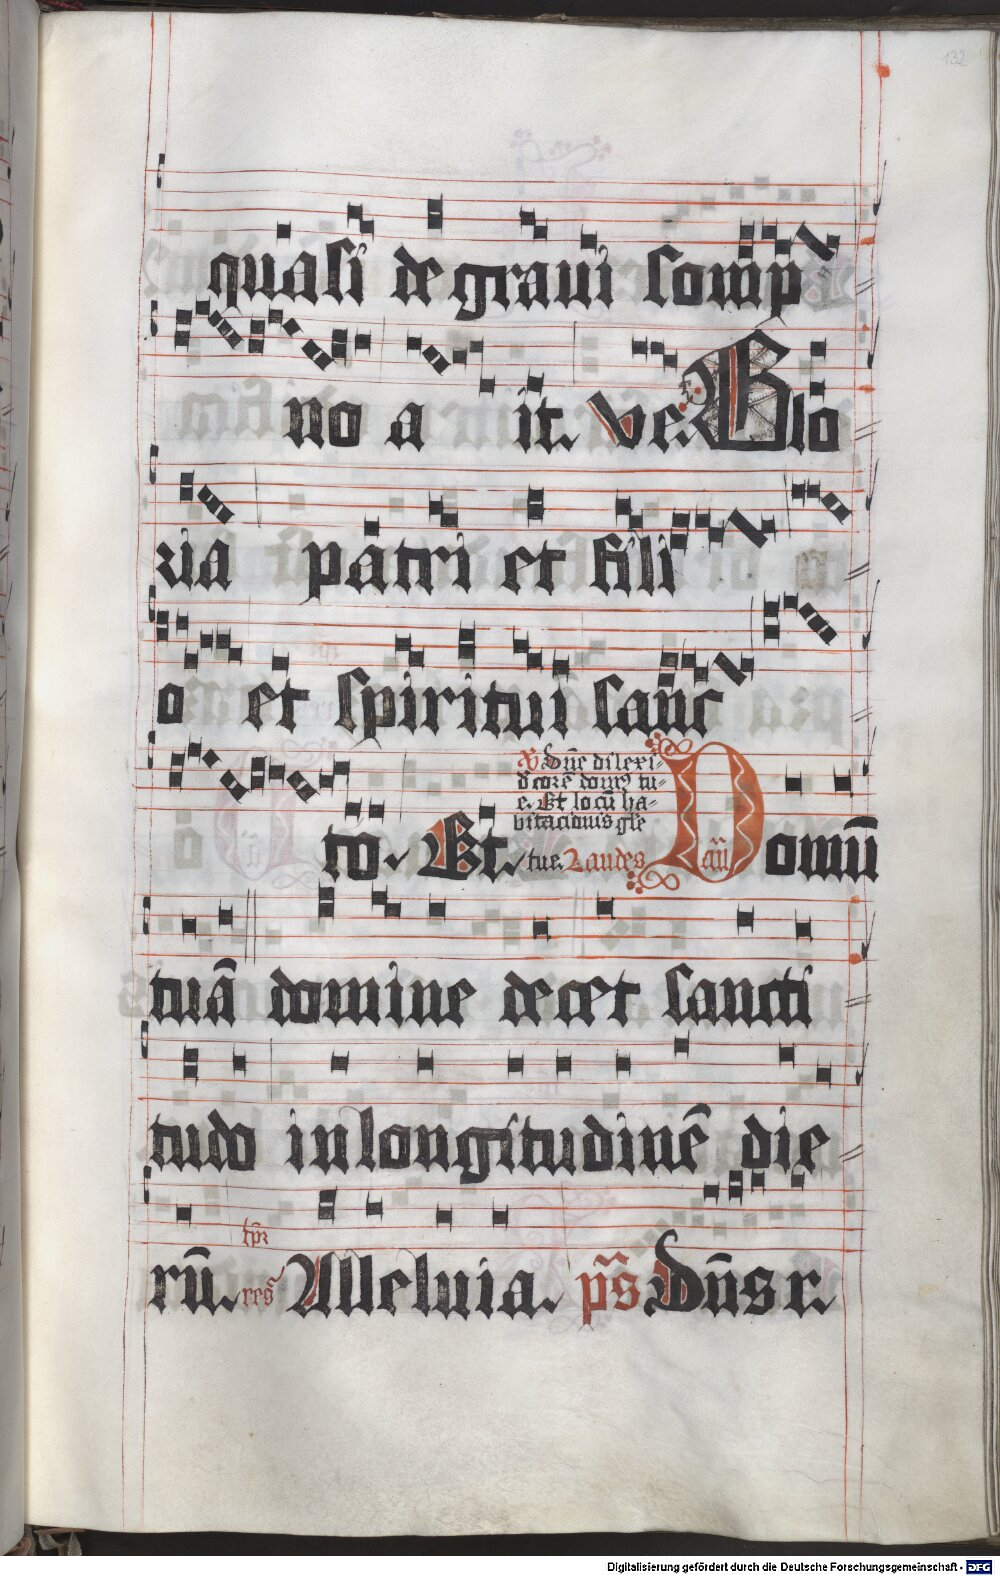 132
quasi de graui somp
no a it. ve. Glo
ria patri et fili
o et spiritui sanc
to. Et.
V Dn̄e dilexi-
decorē domꝰ tu-
e. Et locū ha-
bitacionis glē
tue. Laudes añ Domū
tuā domine decet sancti
tudo in longitudinē die
rū. tp̄r res̄ Alleluia. p̄s Dn̄s r.
Digitalisierung gefördert durch die Deutsche Forschungsgemeinschaft - DFG